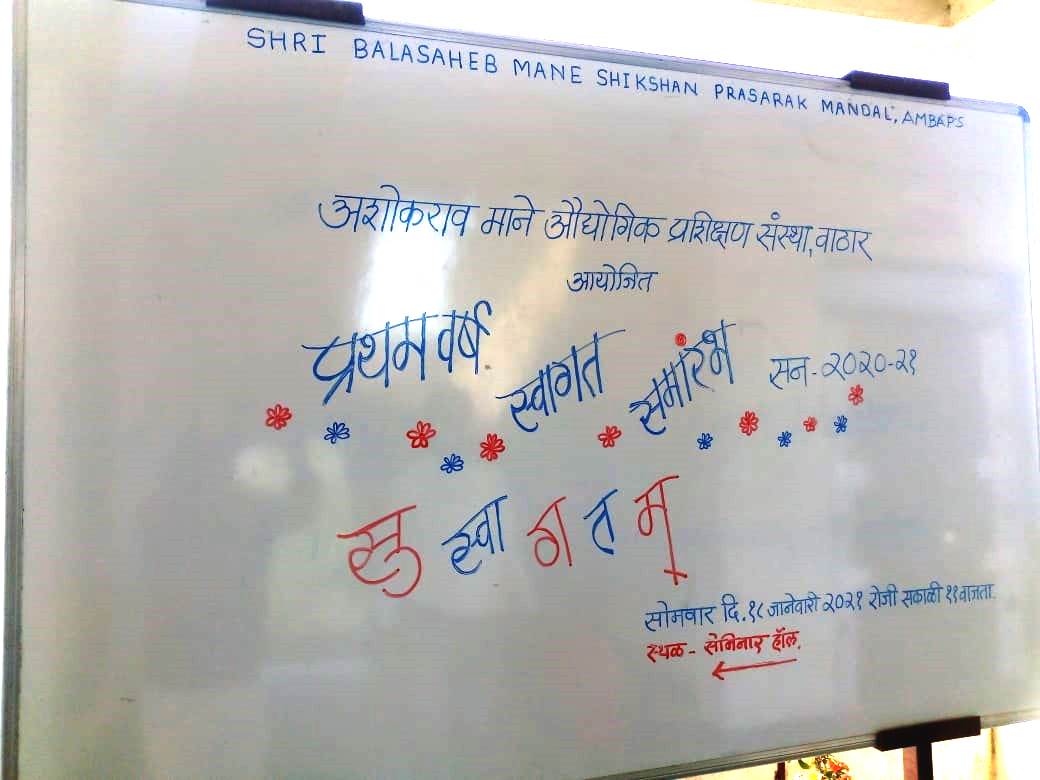 SHRI BALASAHEB MANE SHIKSHAN PRASARAK MANDAL, AMBAP'S
अशोकराव माने औद्योगिक प्रशिक्षण संस्था, वाठार
आयोजित
प्रथम वर्ष स्वागत समारंभ सन - २०२०-२१
सुस्वागतम्
सोमवार दि. १८ जानेवारी २०२१ रोजी सकाळी ११ वाजता.
स्थळ - सेमिनार हॉल.